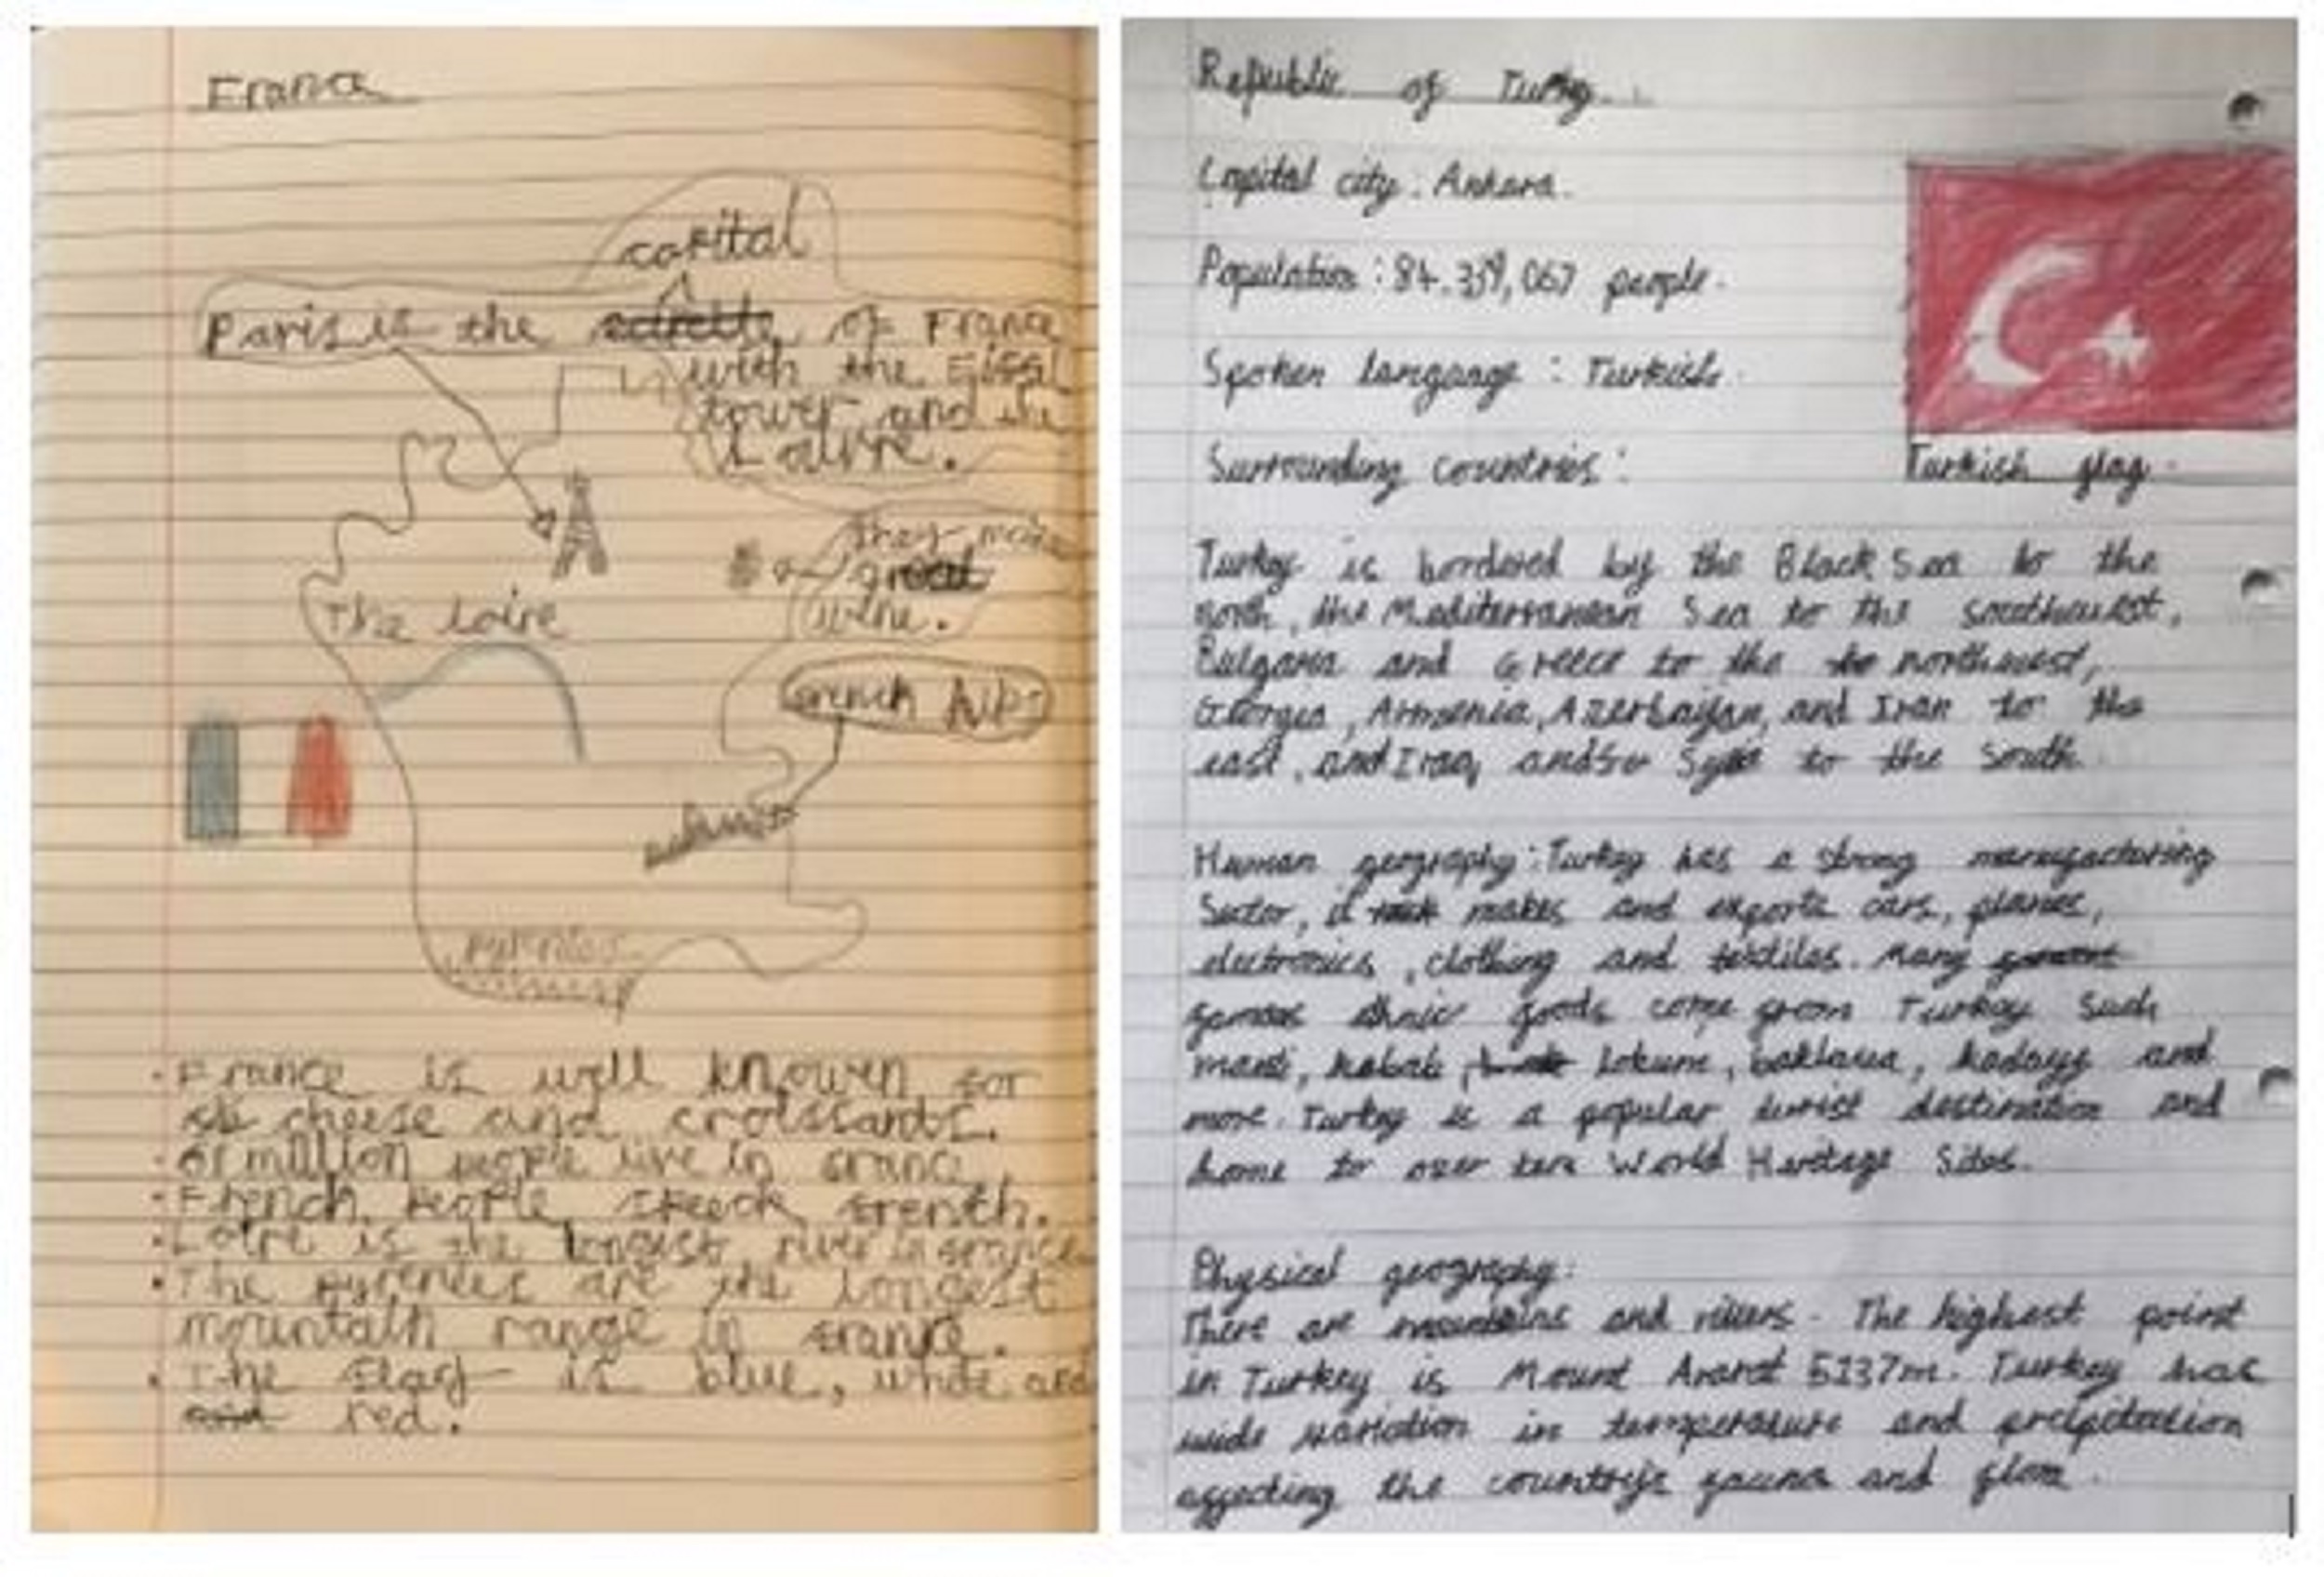 France
capital
Paris is the of France
with the Eiffel
tower and the
Lauvre.
they make
great
wine.
The Loire
french Alps
Pyrenees
· France is well knowen for
cheese and croissants.
· million people live in france
· French people speeck frensh.
· Loire is the longest river in france
· The pyrenees are the longest
mountain range in france.
· The flag is blue, white and
red.
Republic of Turkey.
Capital city: Ankara.
Population: 84.339,067 people.
Spoken langauge: Turkish.
Surrounding countries:
Turkish flag.
Turkey is bordered by the Black Sea to the
north, the Mediterranean Sea to the southwest,
Bulgaria and Greece to the northwest,
Georgia, Armenia, Azerbaijan, and Iran to the
east, and Iraq and Syria to the South.
Human geography: Turkey has a strong manufacturing
Sector, it makes and exports cars, planes,
electronics, clothing and textiles. Many
famous ethnic foods come from Turkey Such
manti, kebab, lokum, baklava, kadayf and
more. Turkey is a popular turist destination and
home to over ten World Heritage Sites.
Physical geography:
There are mountains and rivers. The highest point
in Turkey is Mount Ararat 5137m. Turkey has
wide variation in temperature and precipitation
affecting the country's fauna and flora.